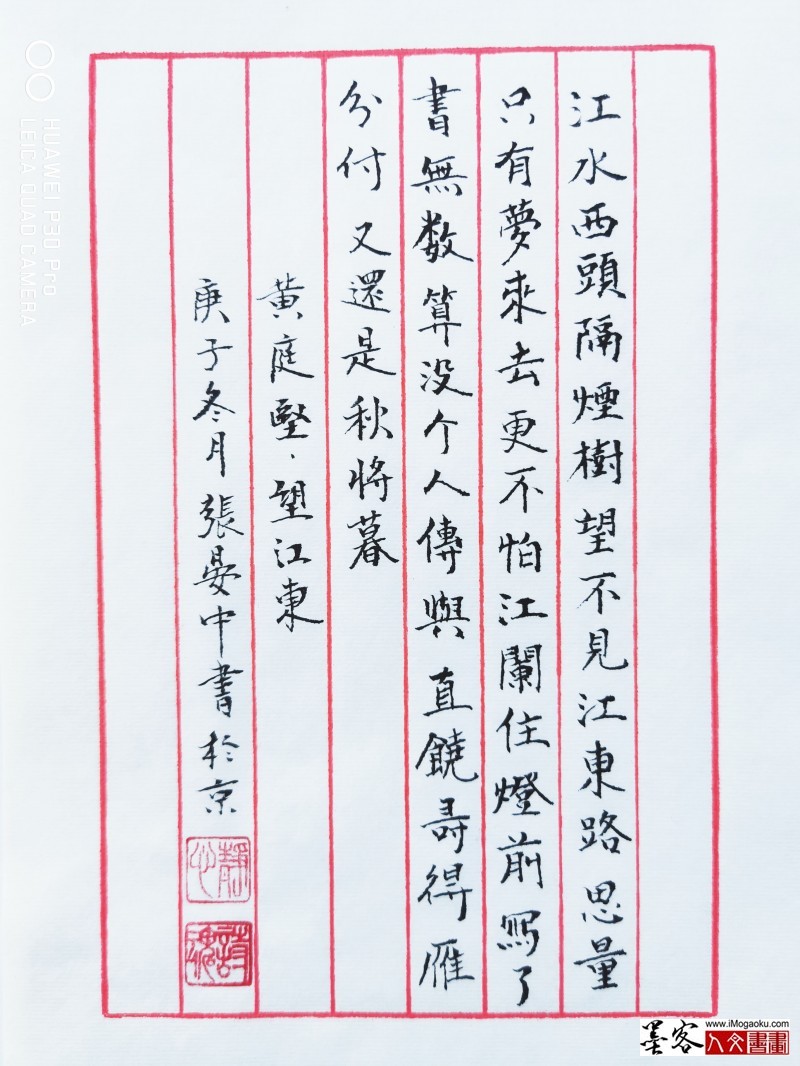 江水西頭隔煙樹望不見江東路思量
只有夢來去更不怕江闌住燈前寫了
書無数算没个人傳與直饒尋得雁
分付又還是秋將暮
黃庭堅、望江東
庚子冬月張晏中書於京
靜心
HUAWEI P30 Pro
LEICA QUAD CAMERA
墨客
www.iMogaoku.com
人文書畫